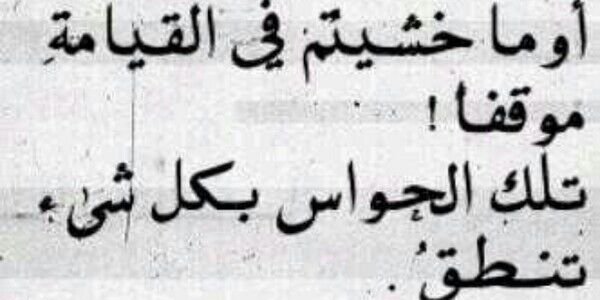 أوما خشيتم في القيامةِ
موقفا !
تلك الحواس بكل شىء
تنطقُ .